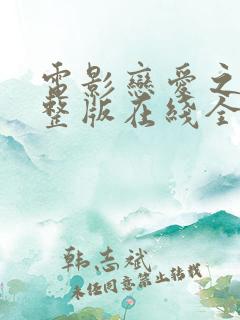 電影戀愛之
整版在綫全
韩志斌
未经同意禁止转载